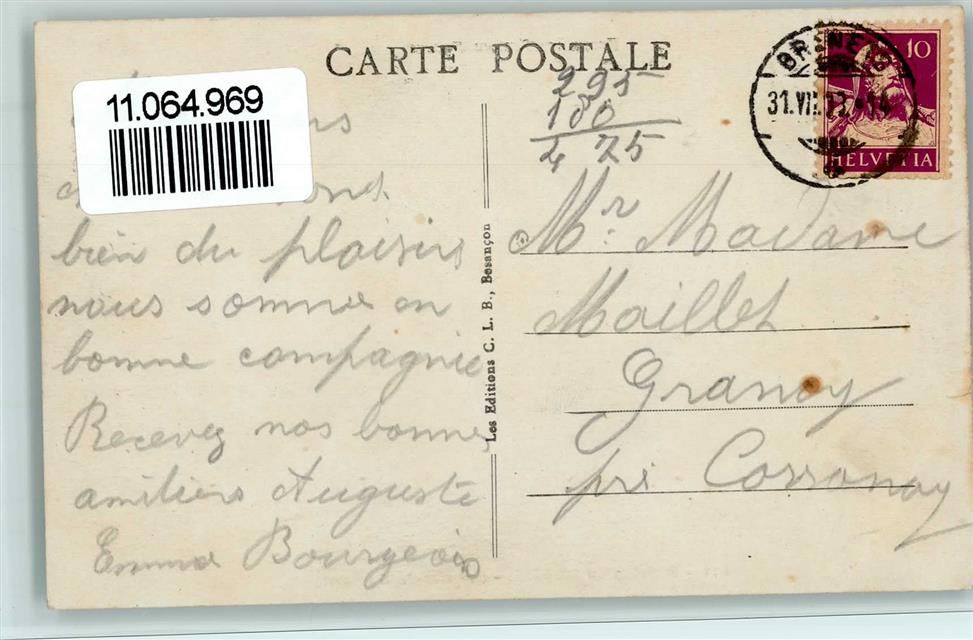 CARTE POSTALE
11.064.969
295
180
2 75
10
HELVETIA
31.VII.
bien du plaisirs
nous somme en
bonne compagnie
Recevez nos bonne
amitiers Auguste
Emma Bourgeois
Les Editions C. L. B., Besançon
Mr. Madame
Maillet
Grancy
pré Cossonay